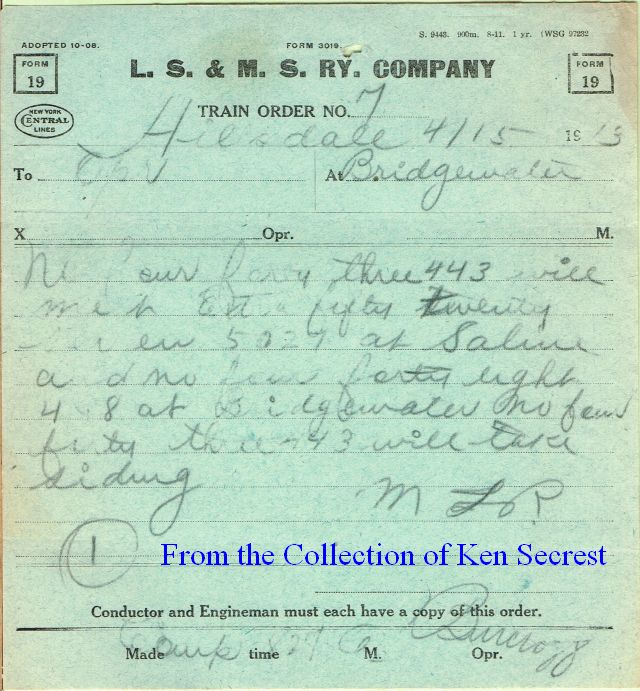 S. 9448. 900m. 8-11. 1 yr. (WSG 97232
ADOPTED 10-08. FORM 3019.
FORM 19 L. S. & M. S. RY. COMPANY FORM 19
NEW YORK CENTRAL LINES
TRAIN ORDER NO. 7
Hillsdale 4/15 1913
To At Bridgewater
X Opr. M.
No four forty three 443 will
meet Extra fifty twenty
seven 5027 at Saline
and no four forty eight
448 at Bridgewater No four
forty three 443 will take
siding
M
1
From the Collection of Ken Secrest
Conductor and Engineman must each have a copy of this order.
Made Comp time M. Opr.